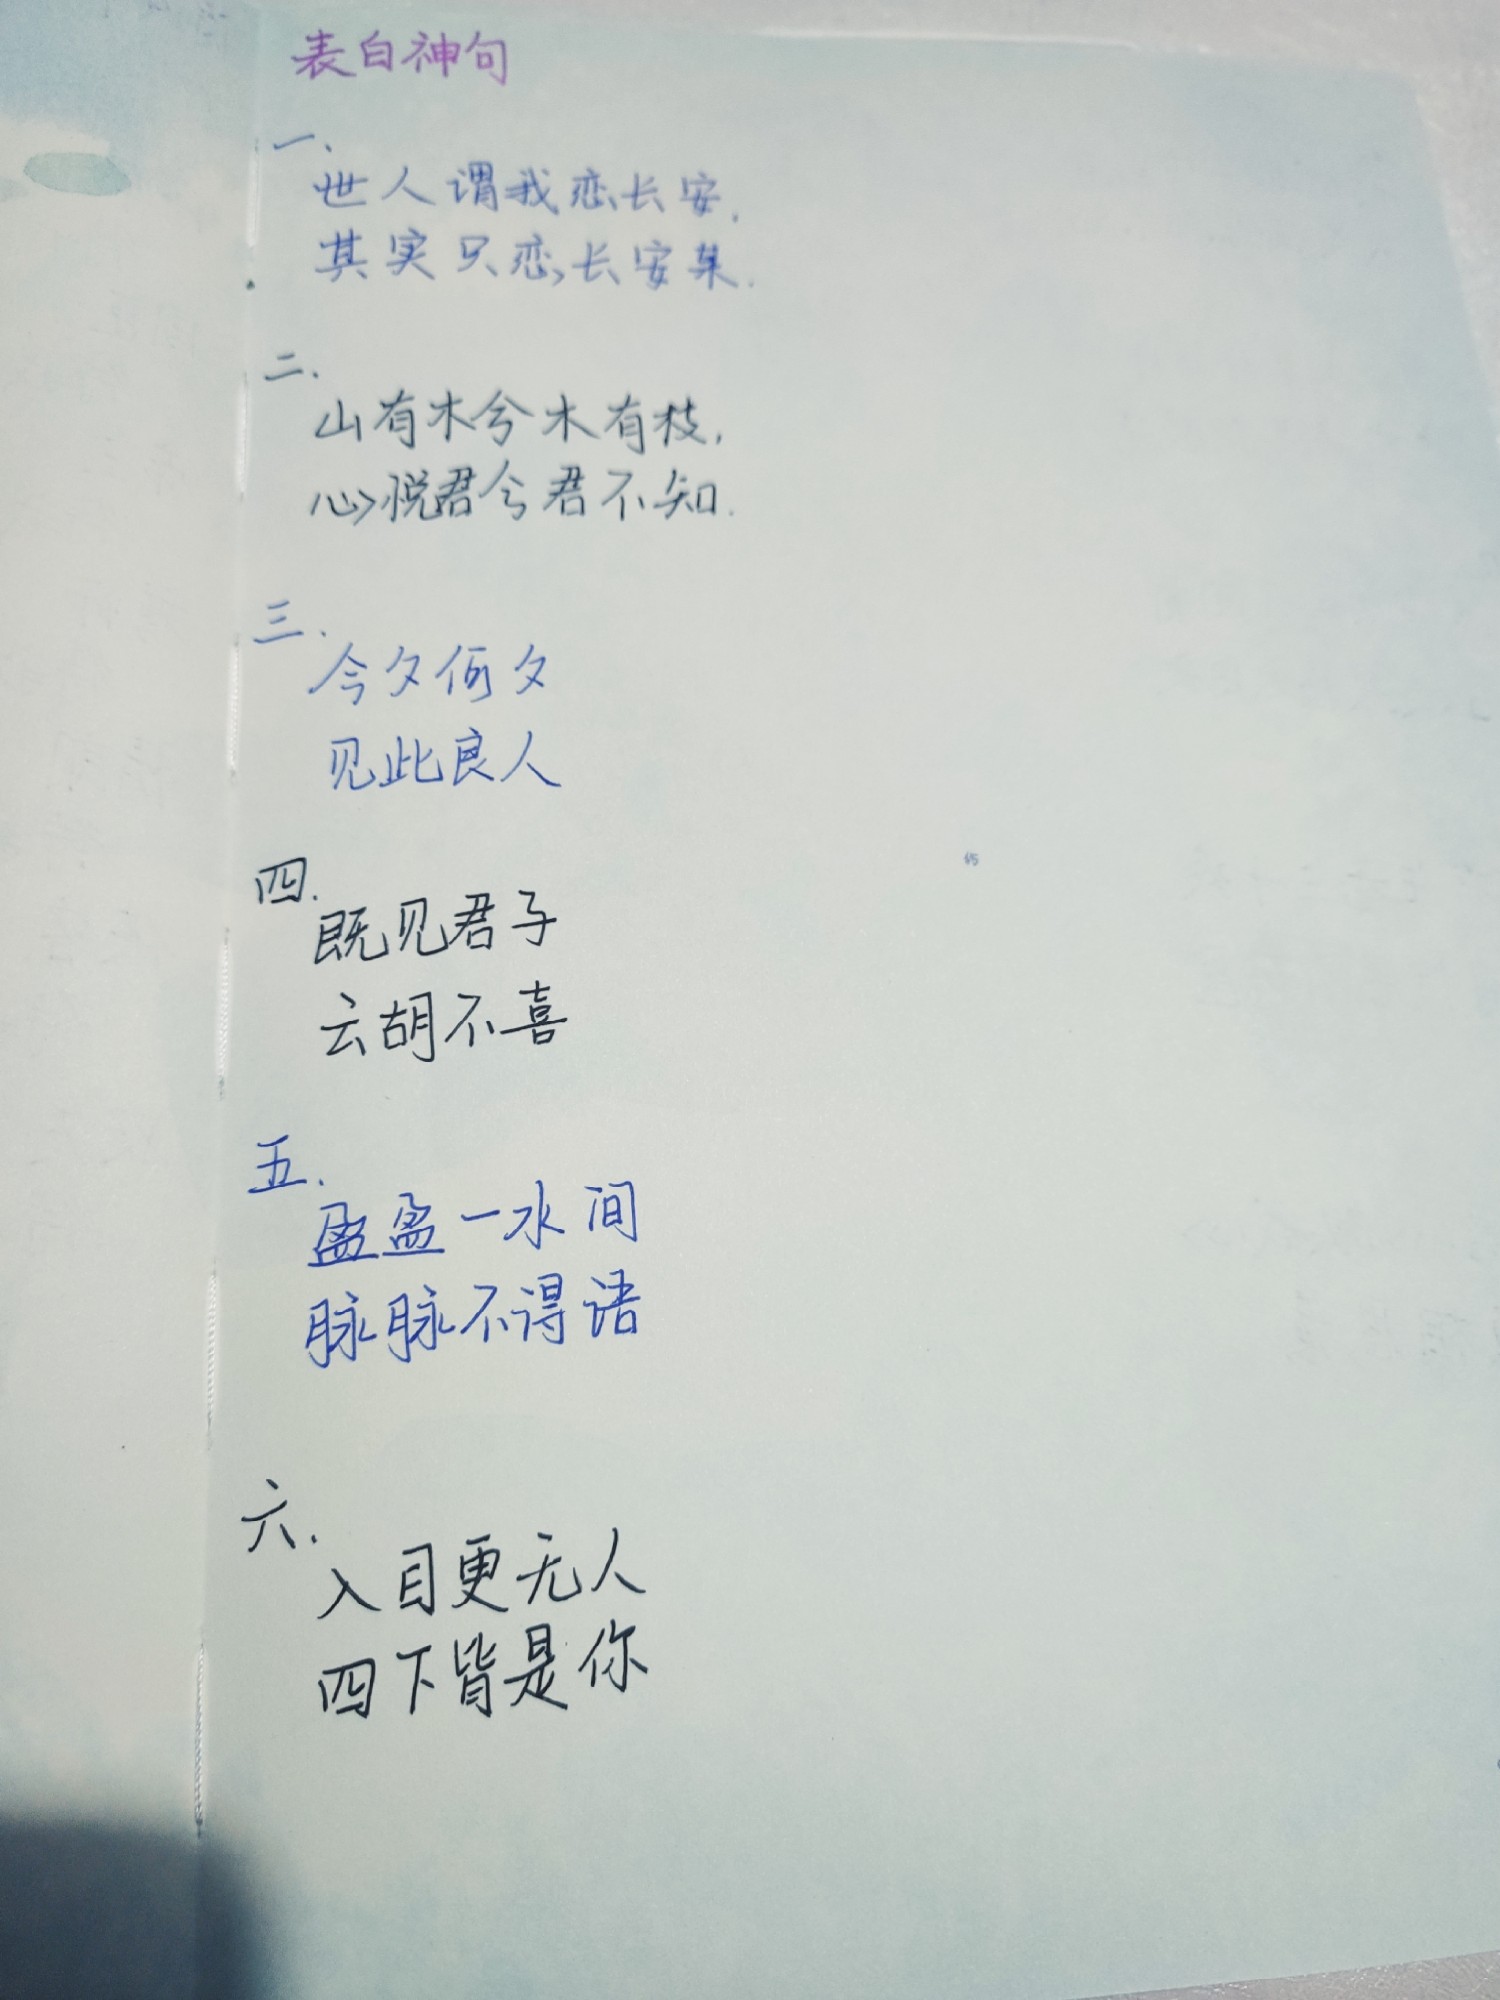 表白神句
一.
世人谓我恋长安,
其实只恋长安某.
二.
山有木兮木有枝,
心悦君兮君不知.
三.
今夕何夕
见此良人
四.
既见君子
云胡不喜
五.
盈盈一水间
脉脉不得语
六.
入目更无人
四下皆是你